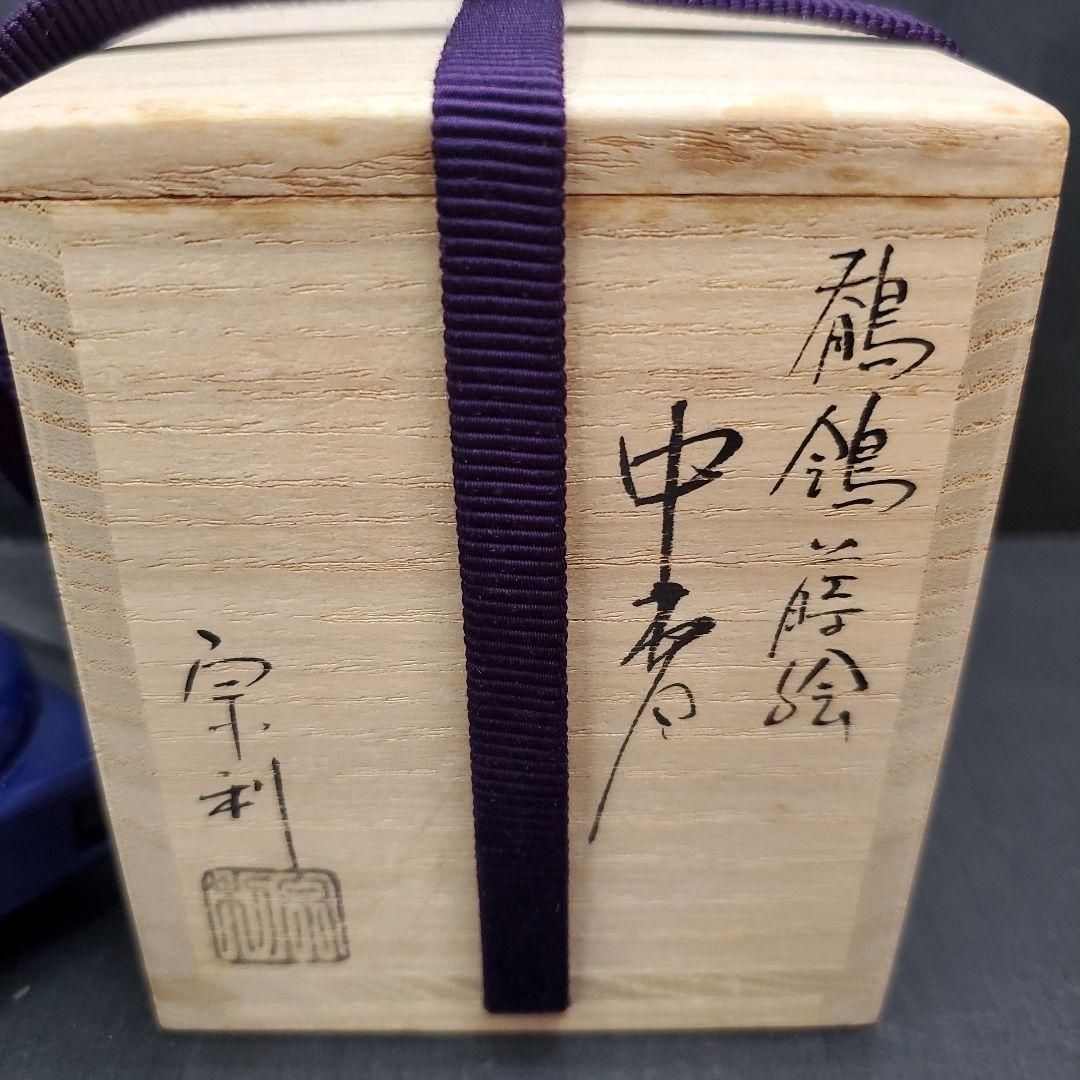 鶺鴒蒔絵
中棗
宗利